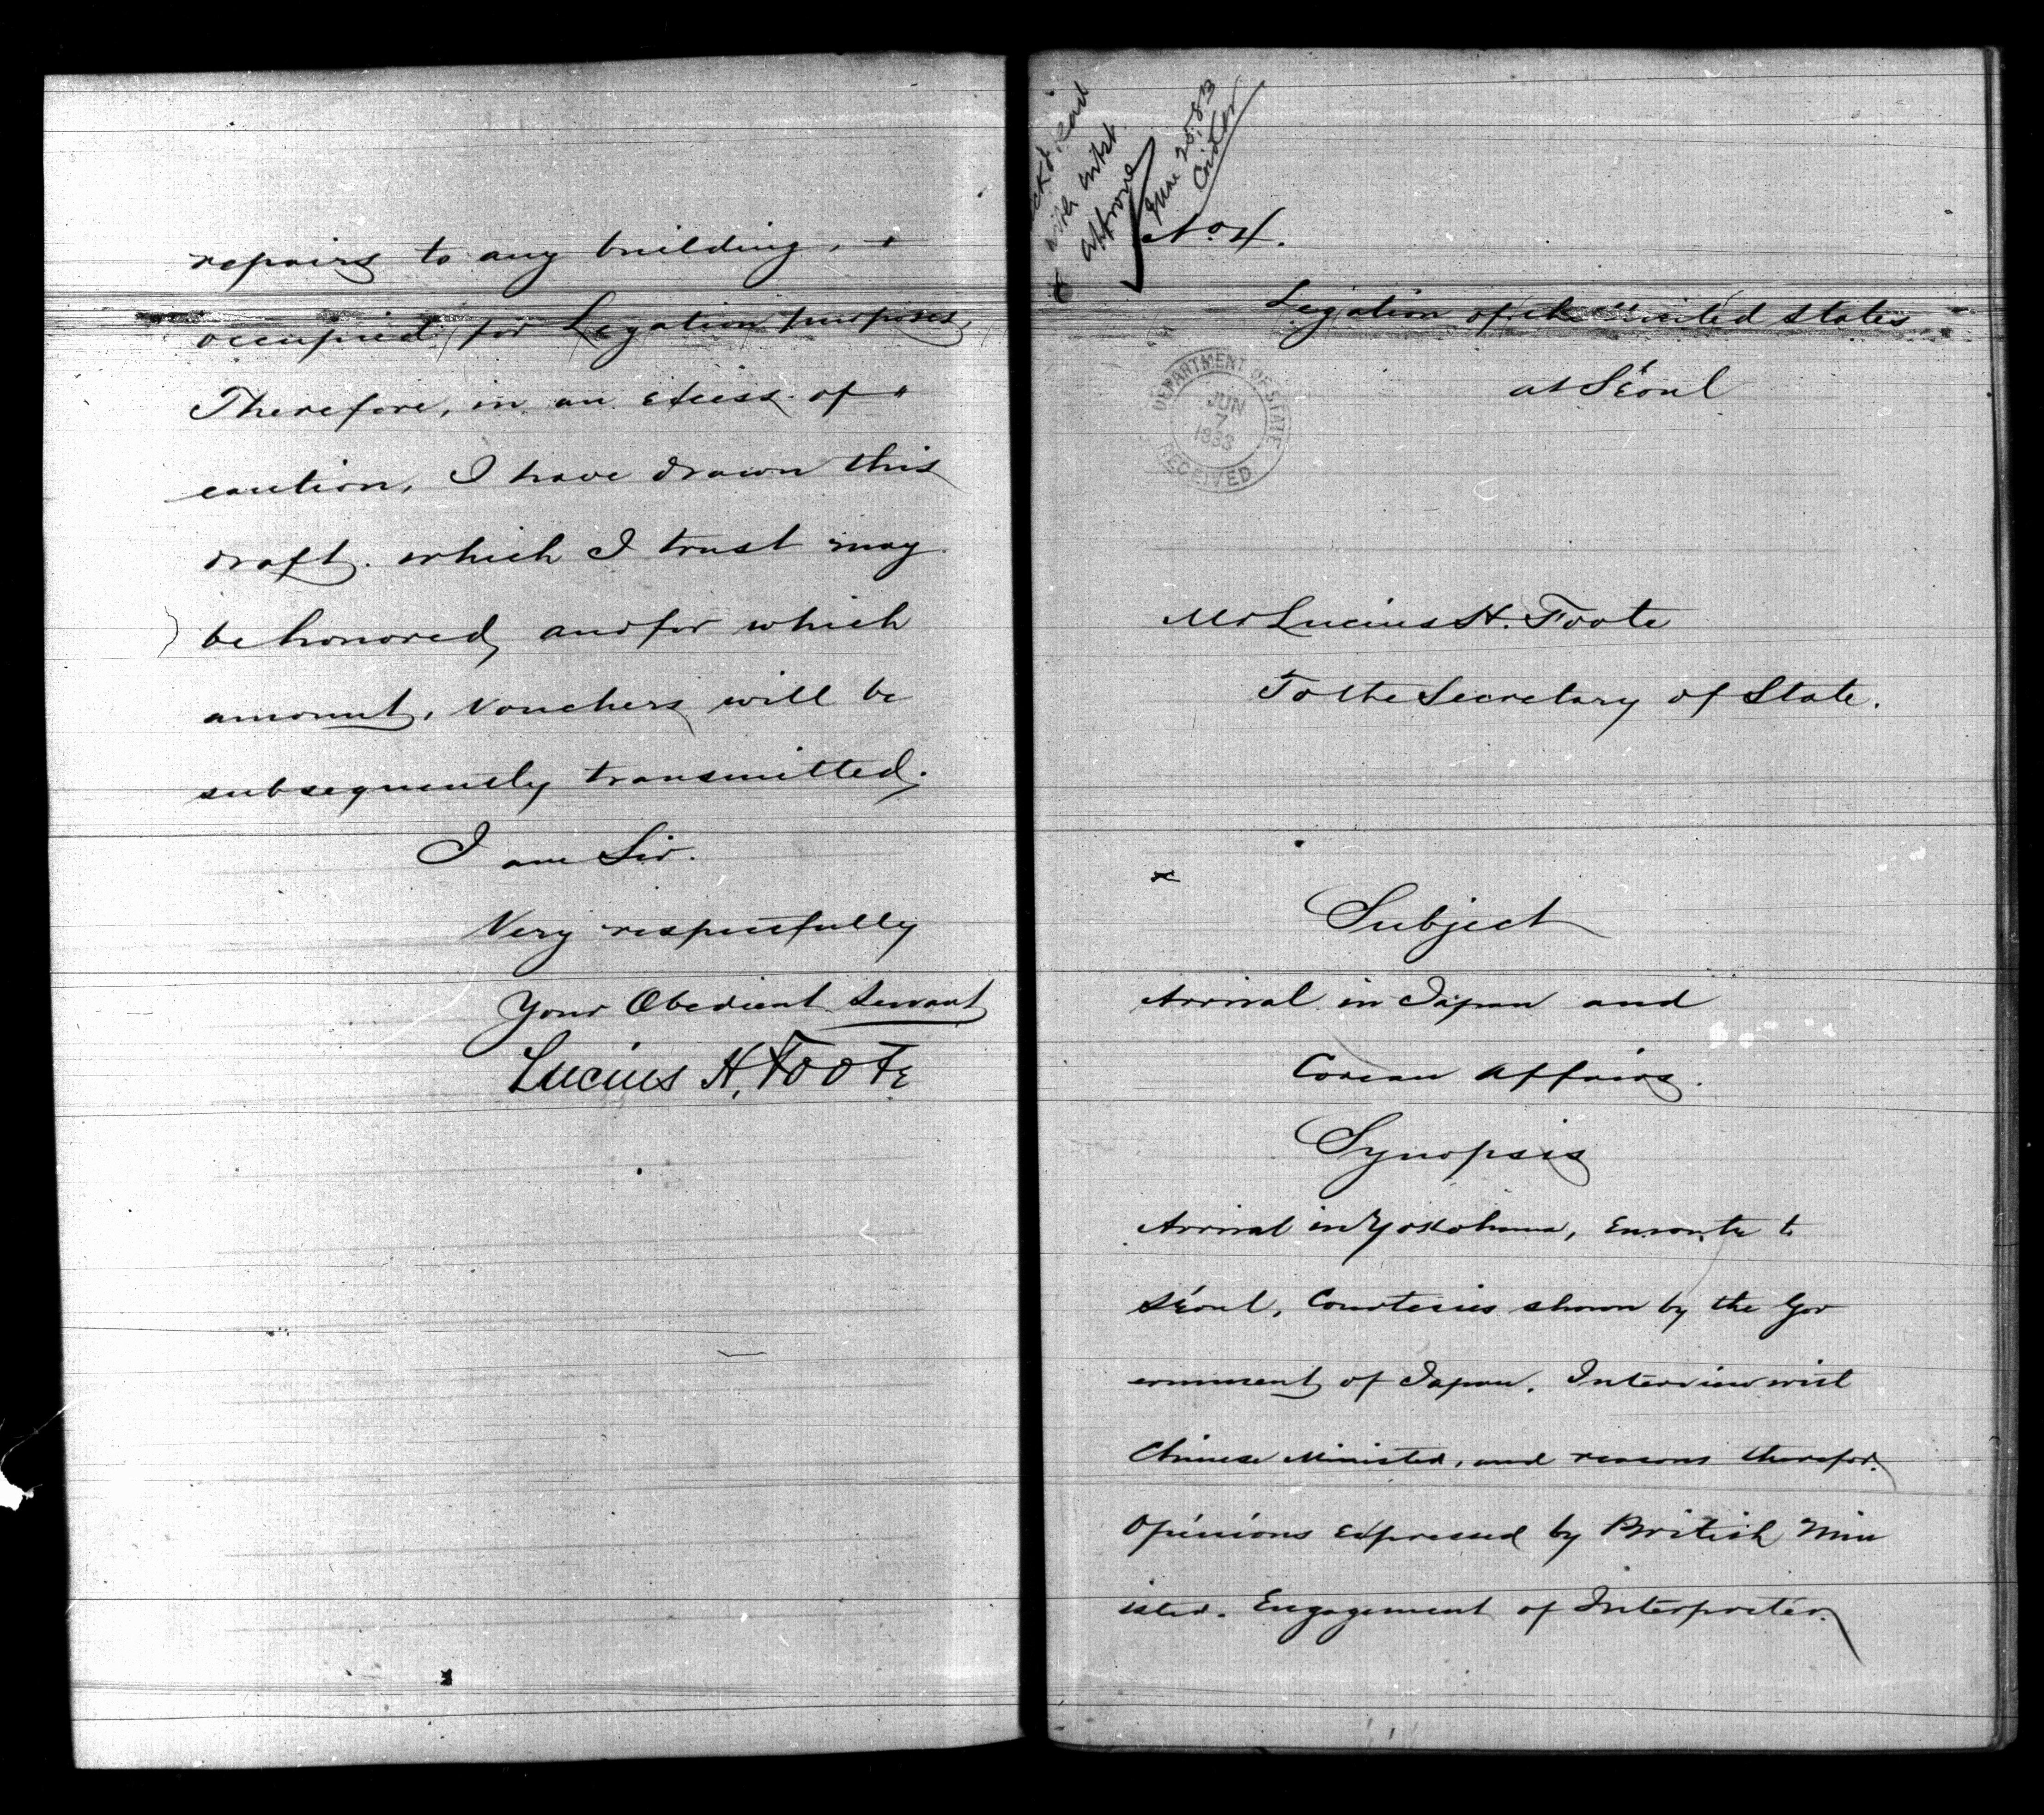 repairs to any building,
occupied for Legation purposes,
Therefore, in an excess of
caution, I have drawn this
draft. which I trust may
be honored, and for which
amount, vouchers will be
subsequently transmitted.
I am Sir.
Very respectfully
Your Obedient Servant
Lucius H. Foote
Ackd, Read
with intst.
& approve
June 25, 83
No 4.
Legation of the United States
at Séoul
DEPARTMENT OF STATE
JUN
7
1883
RECEIVED
Mr Lucius H. Foote
To the Secretary of State.
Subject
Arrival in Japan and
Corean Affairs.
Synopsis
Arrival in Yokohama, Enroute to
Séoul, Courtesies shown by the Gov
ernment of Japan. Interview with
Chinese Minister, and reasons therefor.
Opinions expressed by British Min
ister. Engagement of Interpreter.